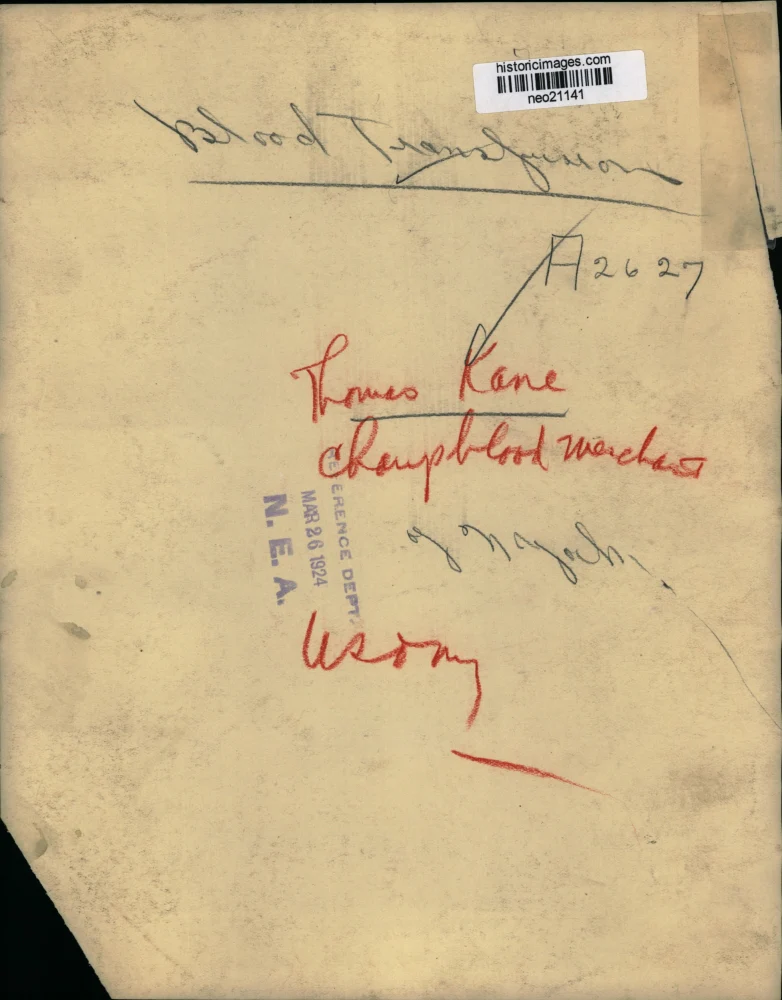 historicimages.com
neo21141
Blood Transfusion
A2627
Thomas Kane
Champ blood merchant
of N York.
REFERENCE DEPT.
MAR 26 1924
N. E. A.